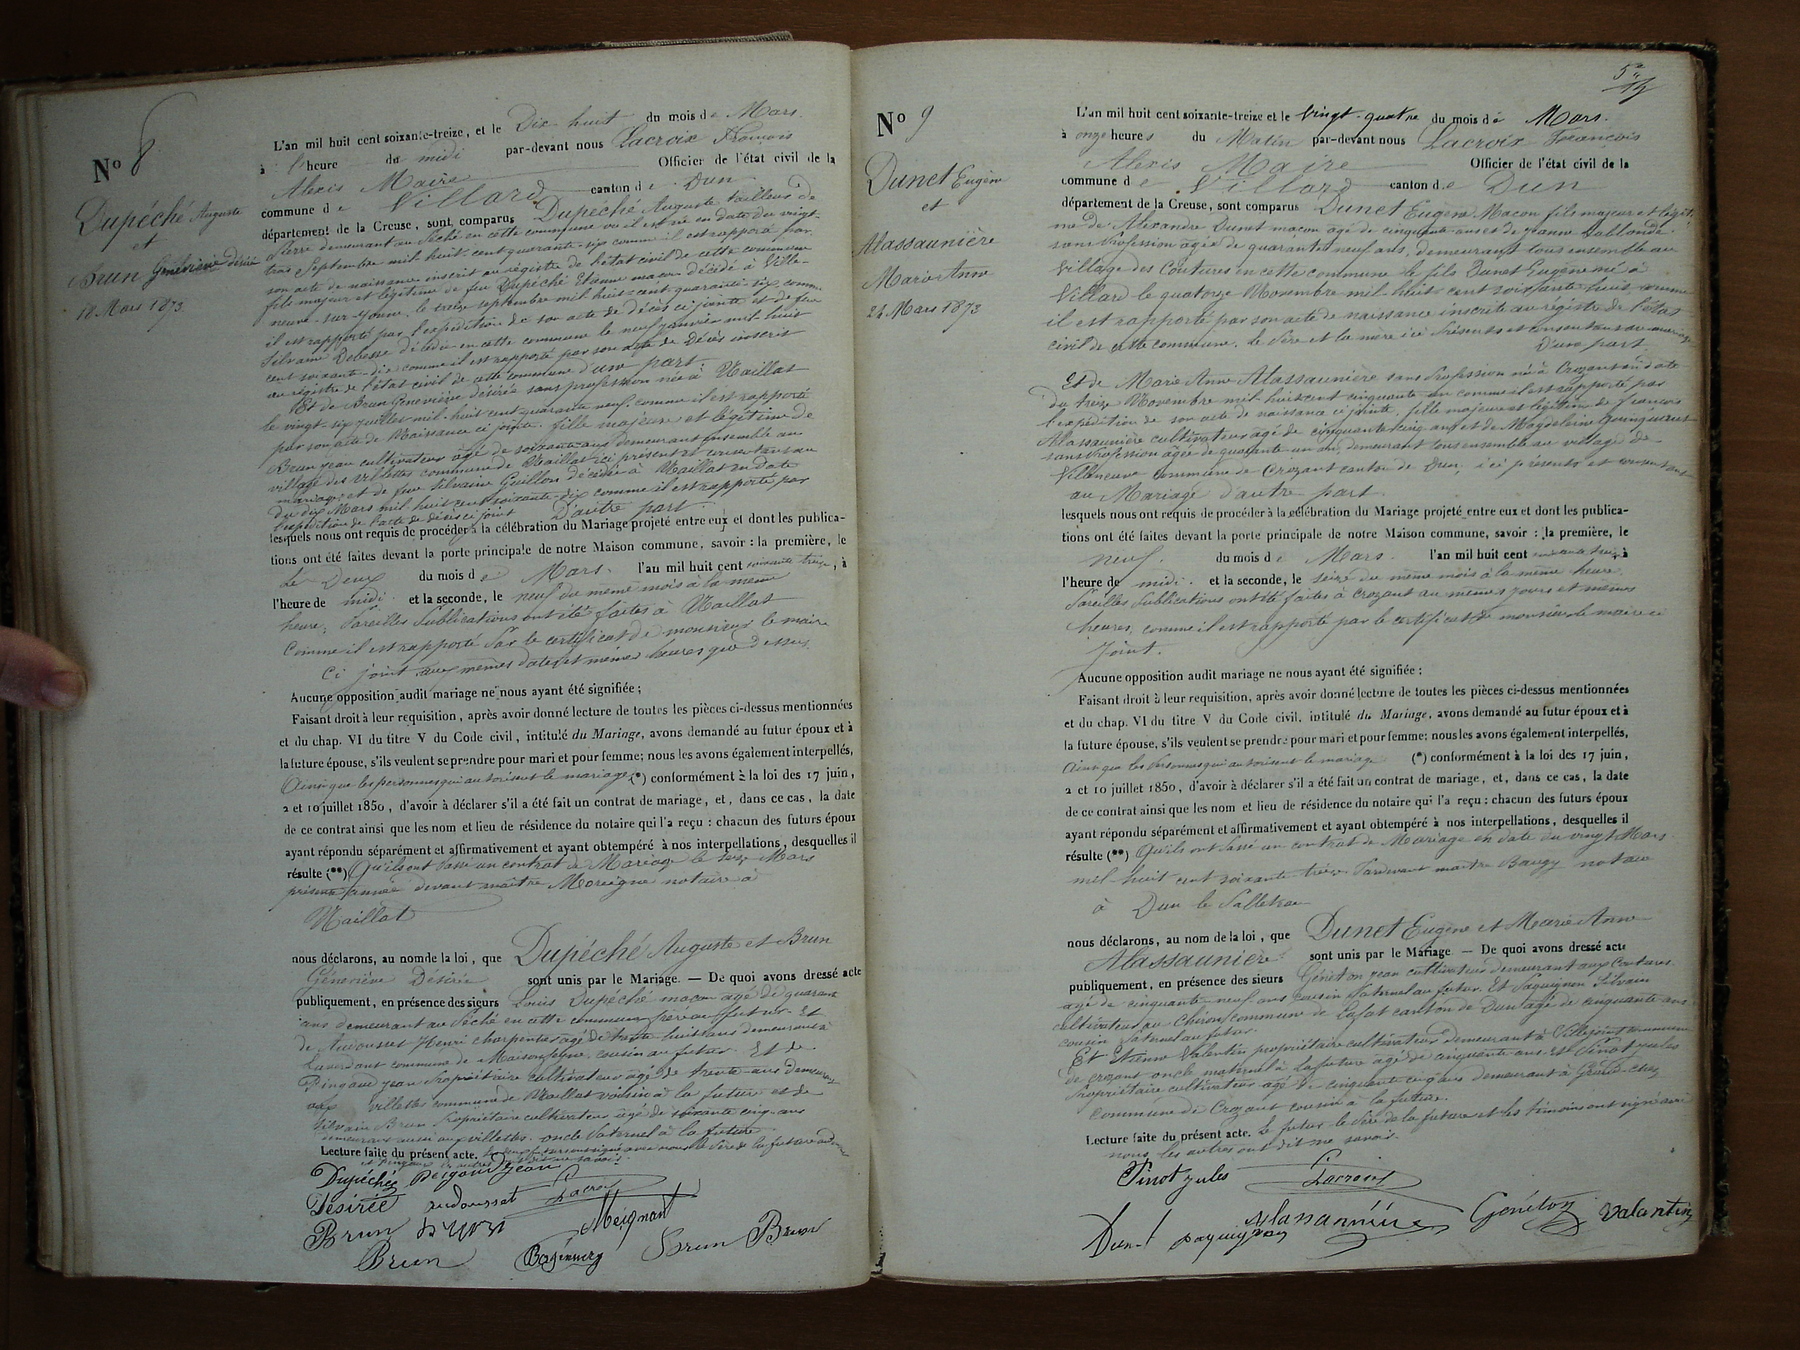 Nº 8
Dupéché Auguste
et
Brun Geneviève désirée
18 Mars 1873
L'an mil huit cent soixante-treize, et le Dix huit du mois de Mars
à l'heure du midi par-devant nous Lacroix François
Alexis Maire Officier de l'état civil de la
commune de Villard canton de Dun
département de la Creuse, sont comparus Dupéché Auguste tailleur de
Pierre demeurant au Séché en cette commune où il est né en date du vingt-
trois Septembre mil huit cent quarante-six comme il est rapporté par
son acte de naissance inscrit au régistre de l'état civil de cette commune
fils majeur et légitime de feu Dupéché Etienne maçon décédé à Ville-
neuve-sur-Yonne, le treize septembre mil huit cent quarante-six comme
il est rapporté par l'expédition de son acte de décès ci jointe et de feu
Silvaine Debesse décédée en cette commune le neuf janvier mil huit
cent soixante-dix comme il est rapporté par son acte de Décès inscrit
au régistre de l'état civil de cette commune d'une part.
Et de Brun Geneviève désirée sans profession née à Naillat
le vingt-six juillet mil-huit cent quarante neuf. comme il est rapporté
par son acte de Naissance ci jointe. fille majeure et légitime de
Brun jean cultivateur âgé de soixante ans demeurant ensemble au
village des Villettes commune de Naillat ici présent et consentant au
mariage et de feue Silvaine Guillon décédée à Naillat en date
du dix Mars mil huit cent soixante-dix comme il est rapporté par
l'expédition de l'acte de décès ci joint D'autre part.
lesquels nous ont requis de procéder à la célébration du Mariage projeté entre eux et dont les publica-
tions ont été faites devant la porte principale de notre Maison commune, savoir : la première, le
Le Deux du mois de Mars. l'an mil huit cent soixante treize, à
l'heure de midi et la seconde, le neuf du même mois à la même
heure, Pareilles Publications ont été faites à Naillat
Comme il est rapporté Par le certificat de monsieur le maire
ci joint aux mêmes dates et mêmes heures que dessus.
Aucune opposition audit mariage ne nous ayant été signifiée ;
Faisant droit à leur requisition, après avoir donné lecture de toutes les pièces ci-dessus mentionnées
et du chap. VI du titre V du Code civil, intitulé du Mariage, avons demandé au futur époux et à
la future épouse, s'ils veulent se prendre pour mari et pour femme; nous les avons également interpellés,
Ainsi que les personnes qui autorisent le mariage (*) conformément à la loi des 17 juin,
2 et 10 juillet 1850, d'avoir à déclarer s'il a été fait un contrat de mariage, et, dans ce cas, la date
de ce contrat ainsi que les nom et lieu de résidence du notaire qui l'a reçu : chacun des futurs époux
ayant répondu séparément et affirmativement et ayant obtempéré à nos interpellations, desquelles il
résulte (**) Qu'ils ont Passé un contrat de Mariage le seize Mars
présente année devant maître Moreigne notaire à
Naillat
nous déclarons, au nom de la loi, que Dupéché Auguste et Brun
Géneviève Désirée sont unis par le Mariage. — De quoi avons dressé acte
publiquement, en présence des sieurs Louis Dupéché maçon agé de quarante
ans demeurant au Séché en cette commune frère au futur. Et
de Audousset Henri charpentier agé de trente huit ans demeurant à
commune de Maisonfeyne cousin au futur. Et de
Pingaud jean Propriétaire cultivateur agé de trente ans demeurant
aux villettes commune de Naillat voisin à la future et de
Silvain Brun Propriétaire cultivateur agé de soixante cinq ans
demeurant aussi aux villettes. oncle Paternel à la future
Lecture faite du présent acte.
Dupéché Peigaud Jean
Désirée audousset Lacroix
Brun Meignant
Brun Brun Brun
5
Nº 9
Dunet Eugène
et
Alassaunière
Marie Anne
24 Mars 1873
L'an mil huit cent soixante-treize et le vingt-quatre du mois de Mars.
à onze heures du Matin par-devant nous Lacroix François
Alexis Maire Officier de l'état civil de la
commune de Villard canton de Dun
département de la Creuse, sont comparus Dunet Eugène Maçon fils majeur et légiti-
me de Alexandre Dunet maçon agé de cinquante ans et de jeanne Lablonde
sans Profession agée de quarante neuf ans, demeurant tous ensemble au
Village des Coutures en cette commune le fils Dunet Eugène né à
Villard le quatorze Novembre mil-huit cent soixante huit comme
il est rapporté par son acte de naissance inscrite au régistre de l'état
civil de cette commune. le Père et la mère ici Présents et consentans au mariage
D'une part
Et de Marie Anne Alassaunière sans Profession née à Crozant en date
Du treize Novembre mil huit cent cinquante un comme il est rapporté par
l'expédition de son acte de naissance ci jointe, fille majeure et légitime de françois
Alassaunière cultivateur agé de cinquante cinq ans et de Magdeleine
sans Profession agée de quarante un ans, demeurant tous ensemble au village de
Villeneuve commune de Crozant canton de Dun, ici présents et consentans
au Mariage d'autre part
lesquels nous ont requis de procéder à la célébration du Mariage projeté entre eux et dont les publica-
tions ont été faites devant la porte principale de notre Maison commune, savoir : la première, le
neuf. du mois de Mars. l'an mil huit cent soixante treize à
l'heure de midi. et la seconde, le seize du même mois à la même heure.
Pareilles Publications ont été faites à Crozant au mêmes jours et mêmes
heures, comme il est rapporté par le certificat de monsieur le maire ci
Joint.
Aucune opposition audit mariage ne nous ayant été signifiée ;
Faisant droit à leur requisition, après avoir donné lecture de toutes les pièces ci-dessus mentionnées
et du chap. VI du titre V du Code civil, intitulé du Mariage, avons demandé au futur époux et à
la future épouse, s'ils veulent se prendre pour mari et pour femme; nous les avons également interpellés,
Ainsi que les Personnes qui autorisent le mariage (*) conformément à la loi des 17 juin,
2 et 10 juillet 1850, d'avoir à déclarer s'il a été fait un contrat de mariage, et, dans ce cas, la date
de ce contrat ainsi que les nom et lieu de résidence du notaire qui l'a reçu : chacun des futurs époux
ayant répondu séparément et affirmativement et ayant obtempéré à nos interpellations, desquelles il
résulte (**) Qu'ils ont Passé un contrat de Mariage en date du vingt Mars
mil huit cent soixante treize Pardevant maître Baugy notaire
à Dun le Palleteau
nous déclarons, au nom de la loi, que Dunet Eugène et Marie Anne
Alassaunière sont unis par le Mariage. — De quoi avons dressé acte
publiquement, en présence des sieurs Géniton jean cultivateur demeurant aux Coutures
agé de cinquante-neuf ans cousin Paternel au futur. Et Paquignon Silvain
cultivateur au Chiron commune de Lafat canton de Dun agé de cinquante ans
cousin Paternel au futur.
Et Etienne Valentin propriétaire cultivateur demeurant à Villejoint commune
de crozant oncle maternel à la future agé de cinquante ans. Et Pinot jules
Propriétaire cultivateur agé de cinquante cinq ans demeurant à
commune de Crozant cousin à la future.
Lecture faite du présent acte. Le futur le Père de la future et les témoins ont signé avec
nous, les autres ont dit ne savoir.
Pinot jules Lacroix
Dunet paquignon Alassaunière Géniton Valantin